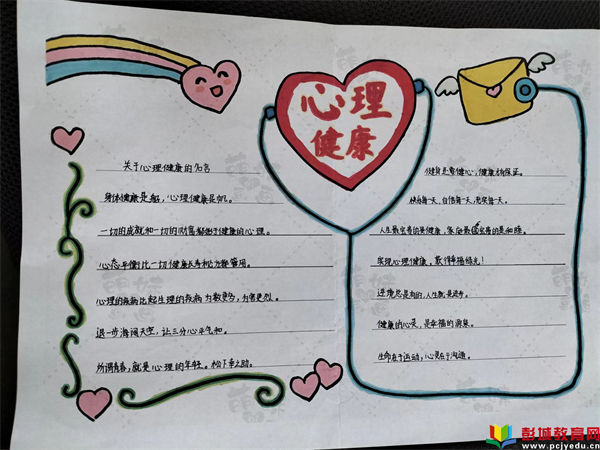 心理
健康
关于心理健康的名言
身体健康是船,心理健康是帆。
一切的成就和一切的财富都始于健康的心理。
心态平衡比一切健康长寿
心理的疾病比起生理的疾病为数更多,为害更烈。
退一步海阔天空,让三分心平气和。
所谓青春,就是心理的年轻。松下幸之助。
健身是需健心,健康
快乐每一天,自信每一天,充实每一天。
人生最宝贵的是健康,家庭最宝贵的是和睦。
实现心理健康,散得幸福绽光!
逆境总是有的,人生
健康的心灵,是幸福的源泉。
生命在于运动,心灵在于沟通。
彭城教育网
www.pcjyedu.cn